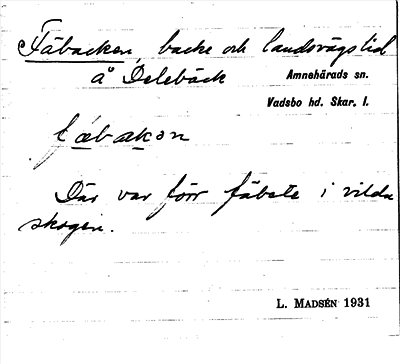 Fäbacken, backe och landsvägslid
å Delebäck
Amnehärads sn.
Vadsbo hd. Skar. l.
fäbakən
Där var förr fäbete i vilda
skogen.
L. MADSÉN 1931